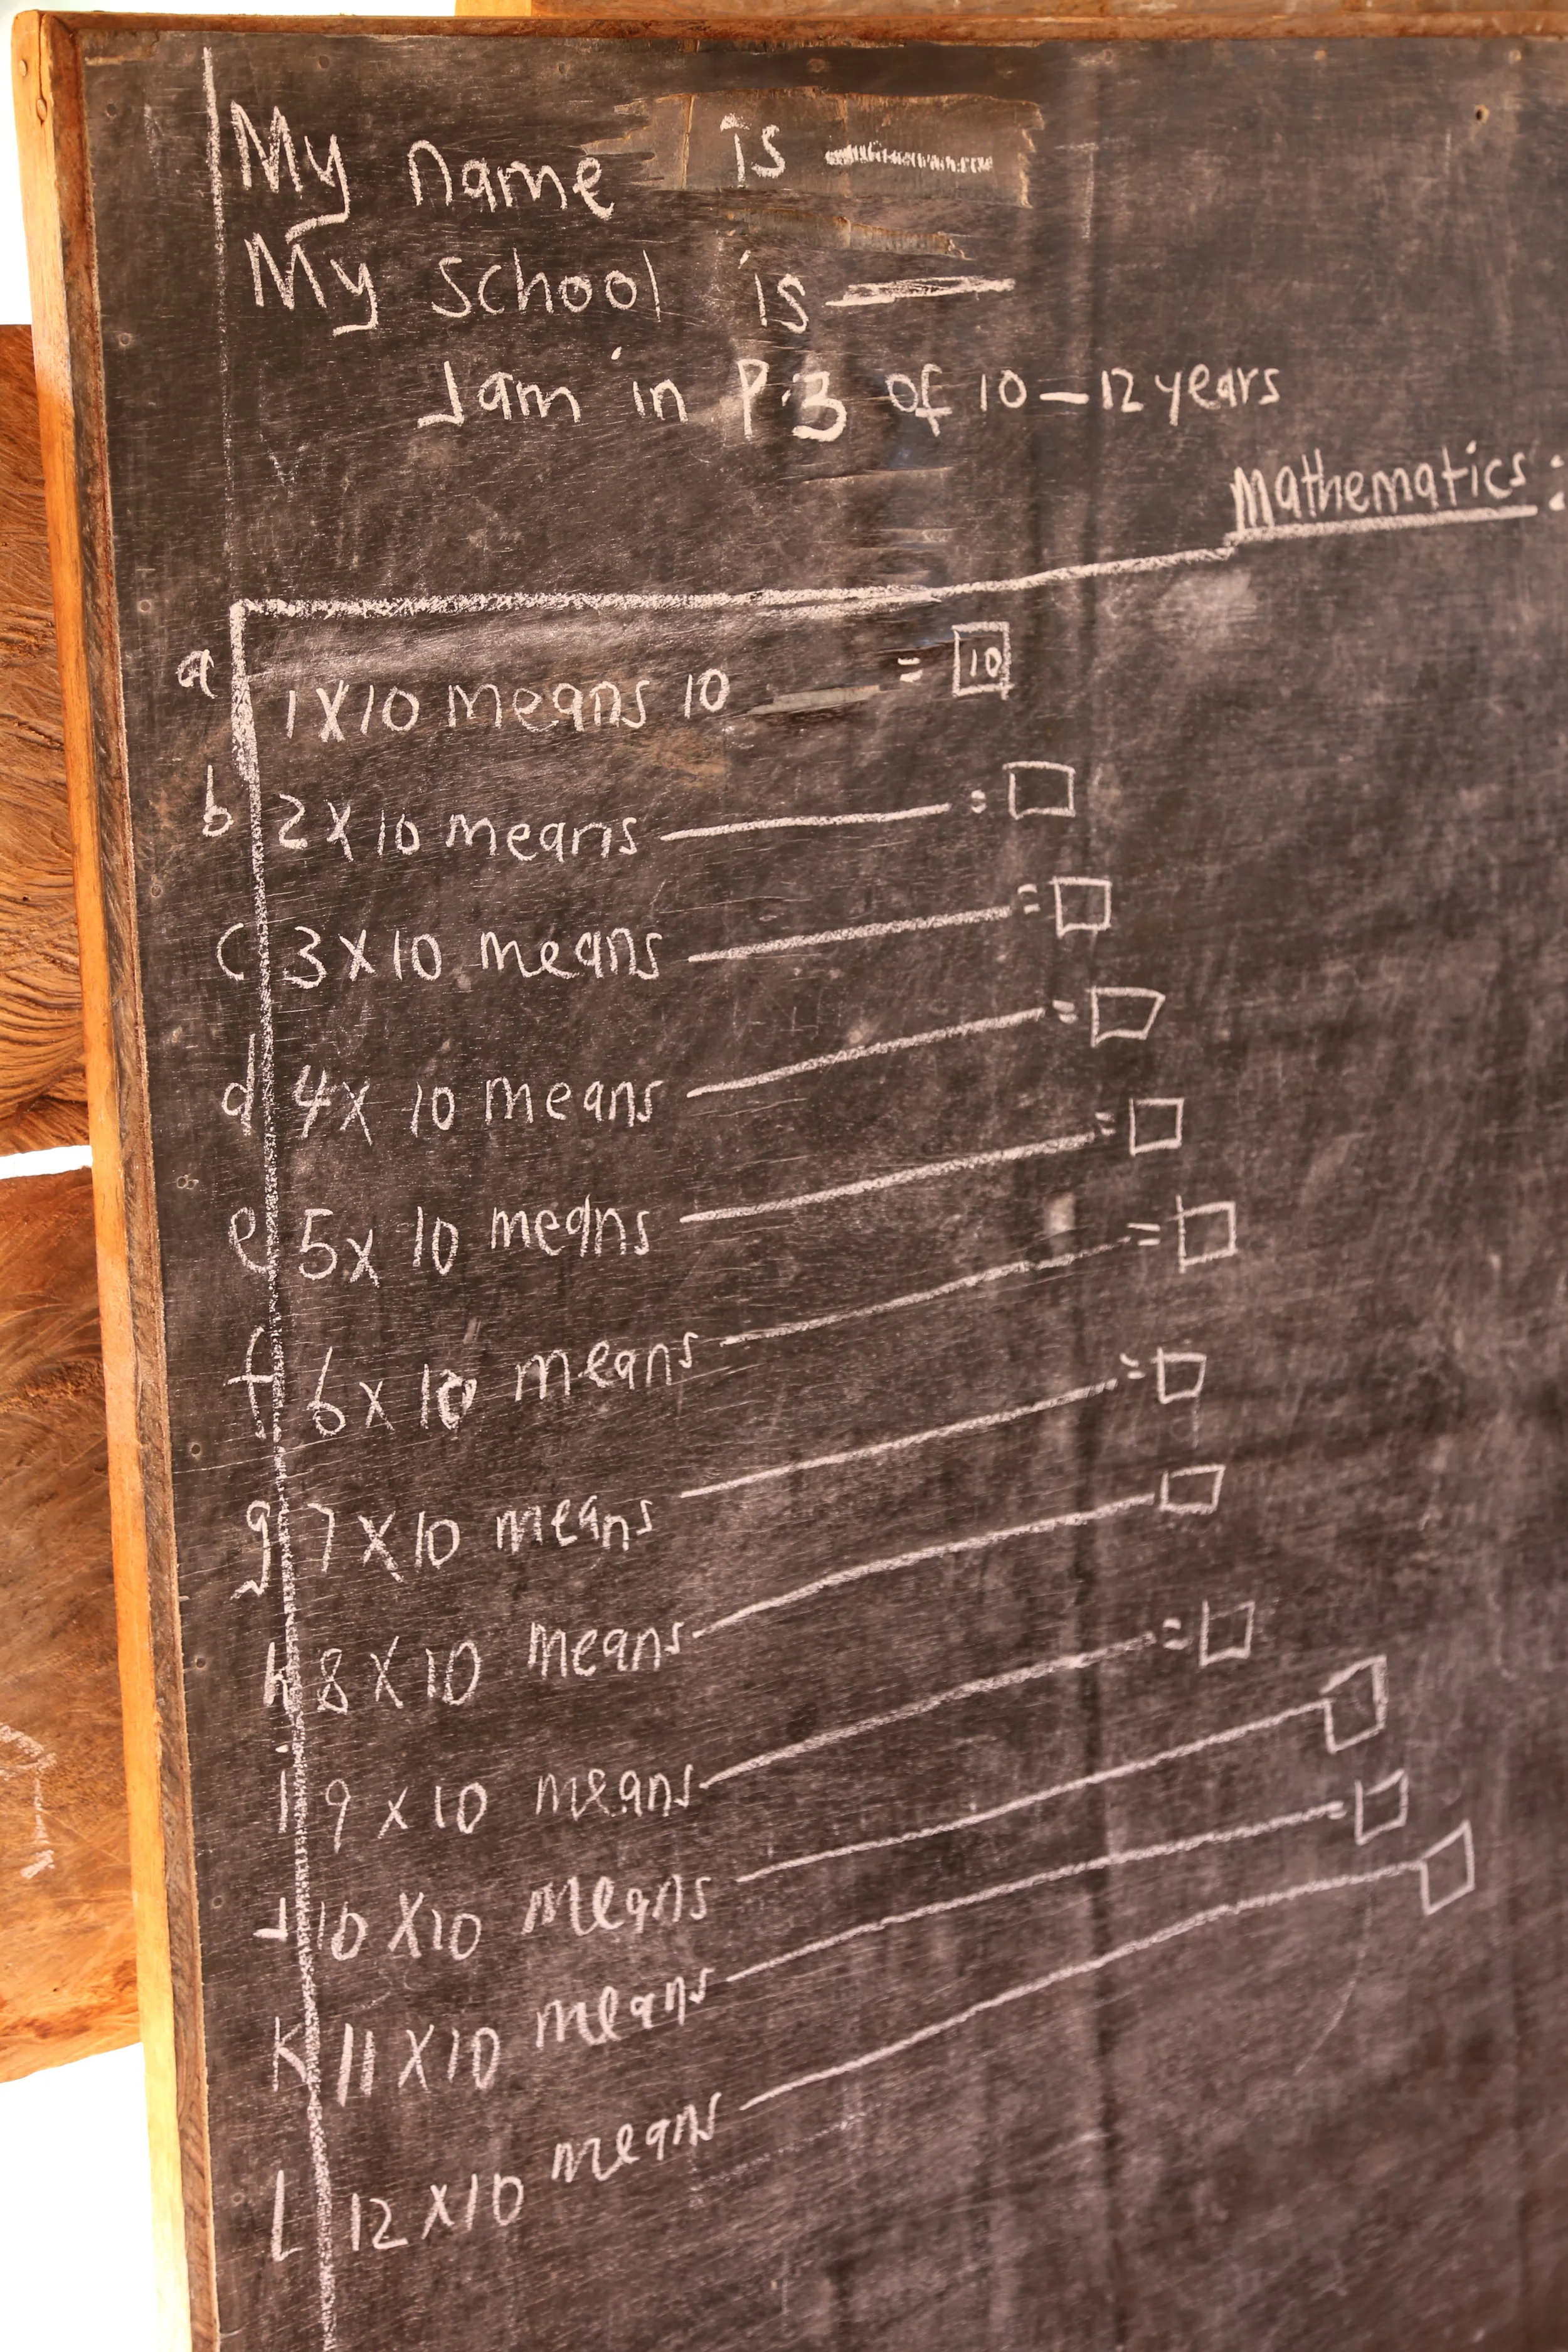 My name is
My school is
I am in P.3 of 10 – 12 years
Mathematics:
a 1 X 10 means 10 = 10
b 2 X 10 means =
c 3 X 10 means =
d 4 X 10 means =
e 5 X 10 means =
f 6 X 10 means =
g 7 X 10 means =
h 8 X 10 means
i 9 X 10 means =
J 10 X 10 means
K 11 X 10 means =
L 12 X 10 means